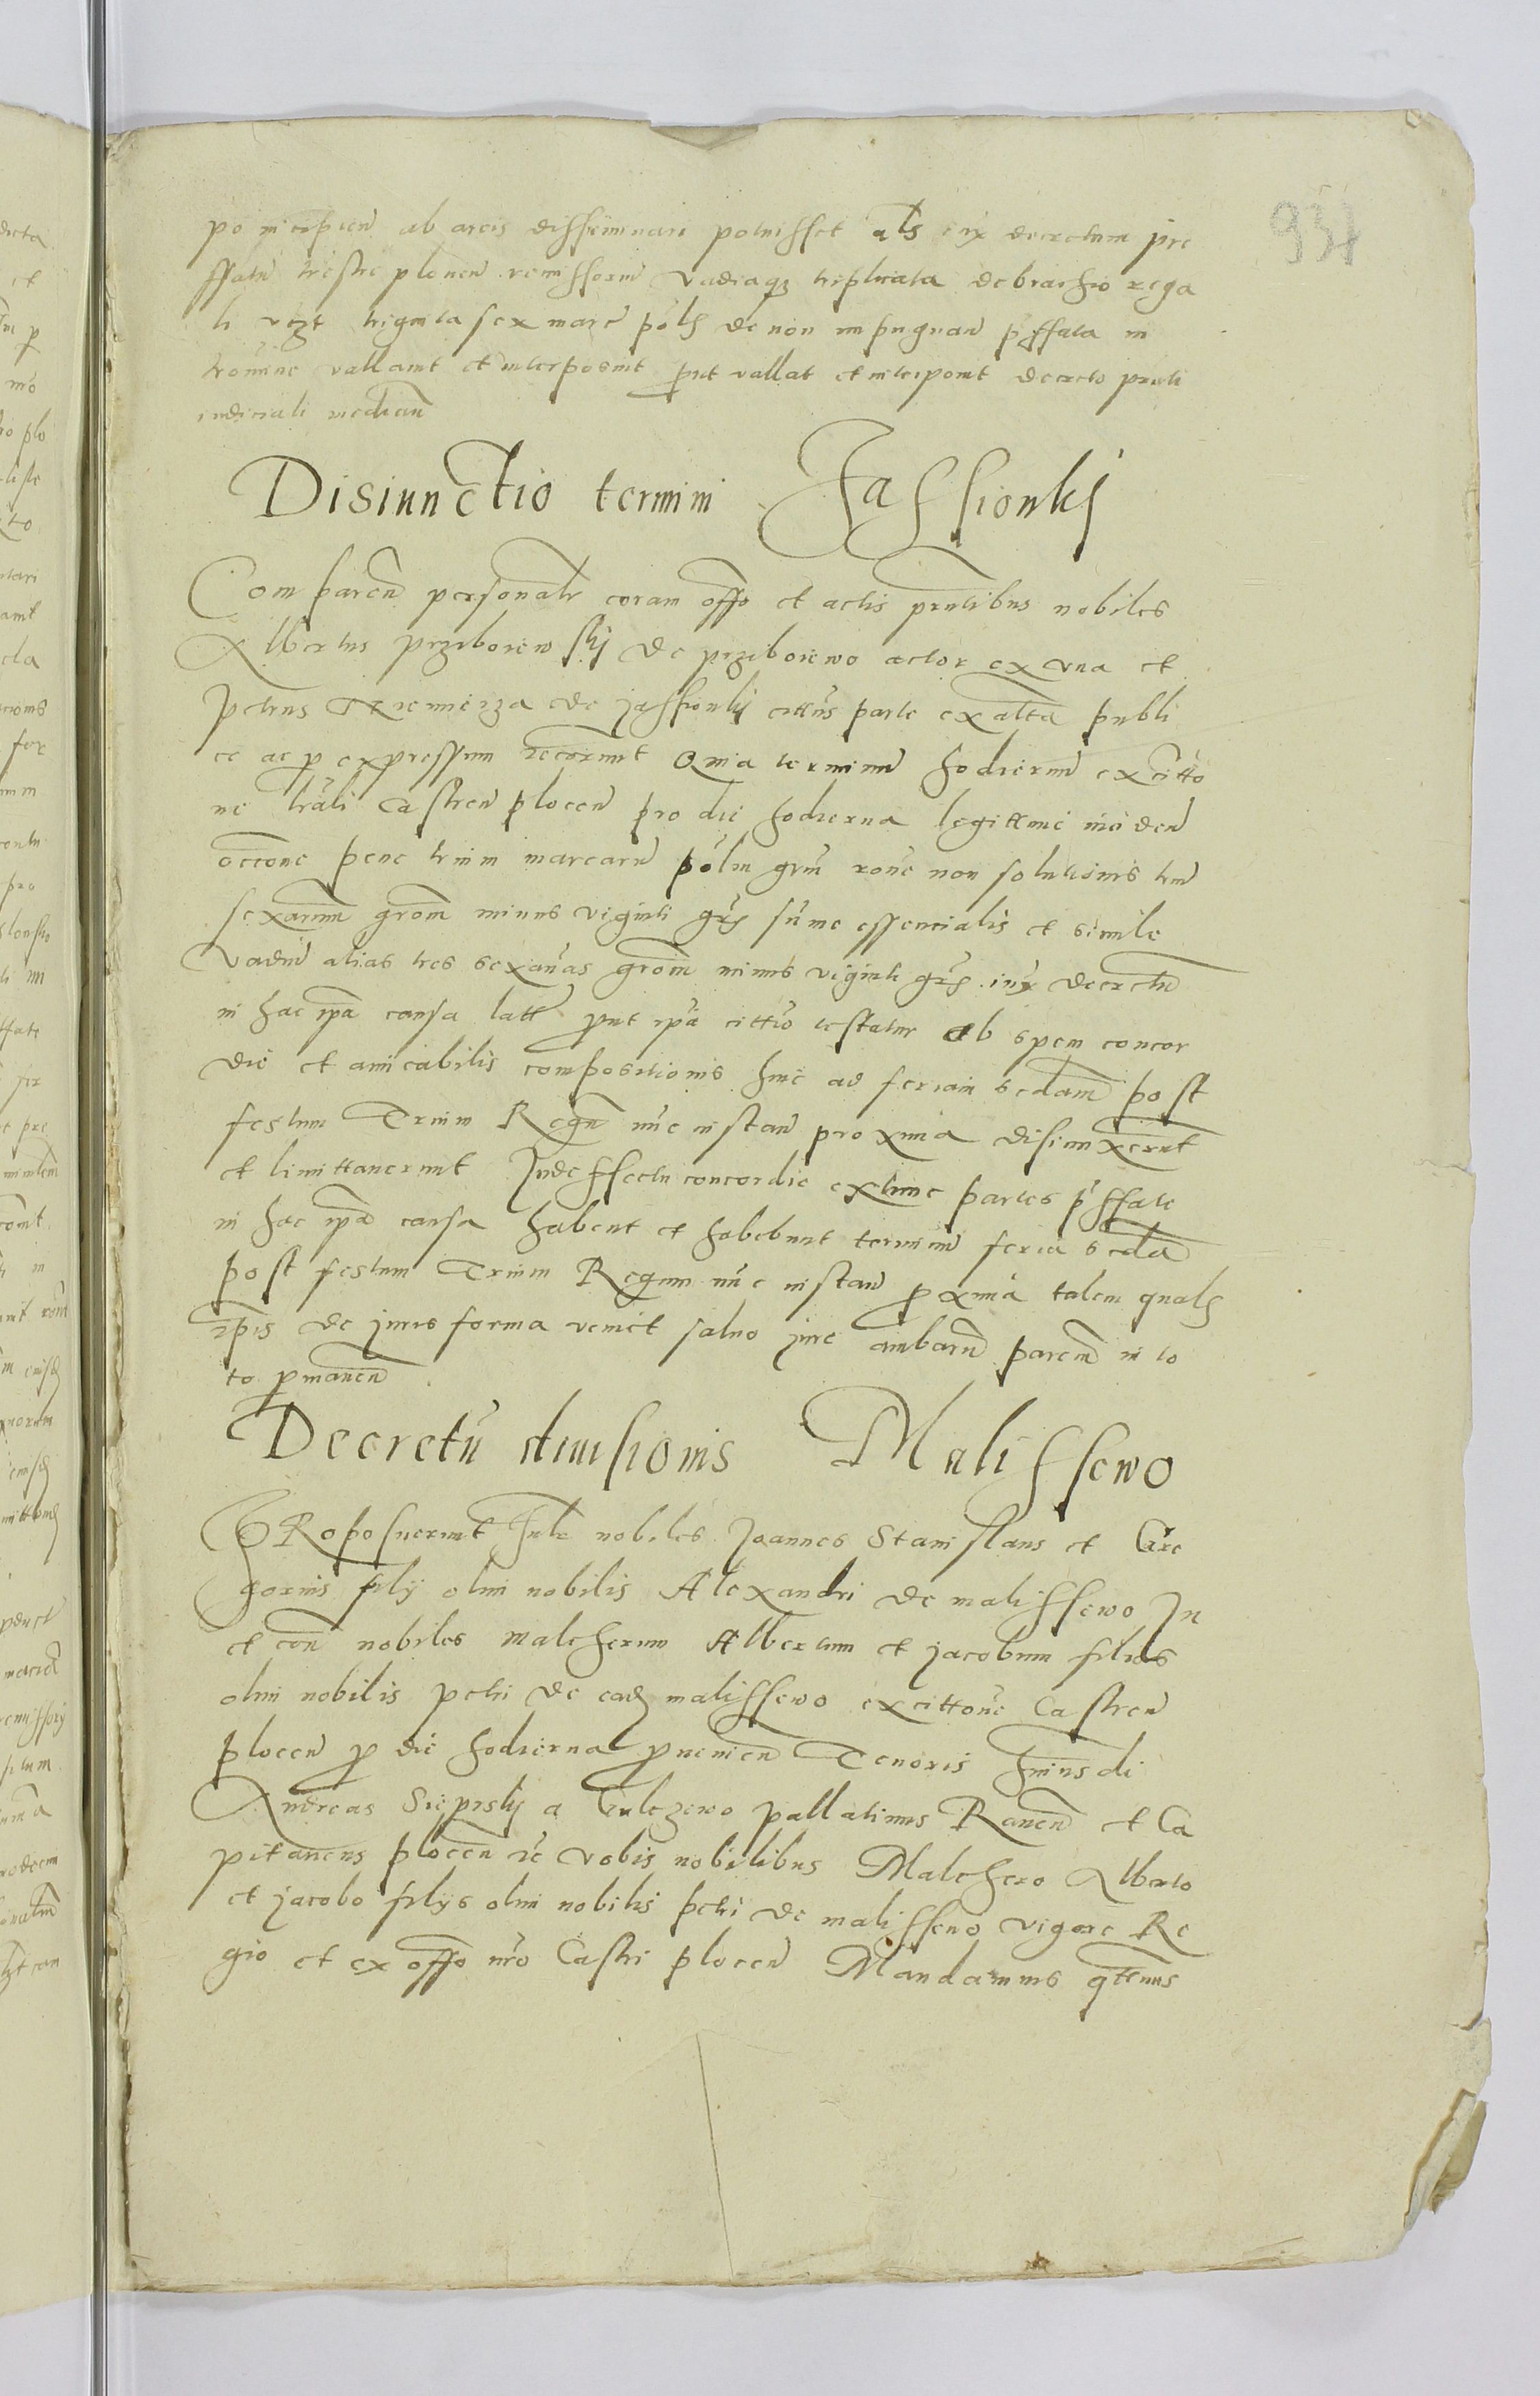 937
ab arcis potuisset als iux decretum pre
ffatu remissorm vadiaqz triplicata de brachio rega
li vczt triginta sex marc pols de non impugnan pffata in
vallavit et interposuit put vallat et interponit decreto pnti
iudiciali median
Disiunctio termini Jassionki
Comparen personalr coram offo et actis pntibus nobiles
Albertus przeborewskj de przeborewo actor ex vna et
petrus de jassionkj parte ex alta publi
ce ac p expressum recorunt Quia terminu hodiernu ex citto
ne trali Castren plocen pro die hodierna legittime inciden
occone pene trium marcaru polm grm rone non solutionis trm
sexarum grom minus viginti grs sume essencialis et simile
vadiu alias tres sexanas grom minus viginti grs iux decretu
in hac ipa causa latt put ipa cittio testatur ob spem concor
die et amicabilis compositionis hinc ad feriam scdam post
festum Trium Regu nuc instan proxima disiunxerut
et limittaverunt In deffectu concordie extunc partes pffate
in hac ipa causa habent et habebunt terminu feria scda
post festum Trium Regum nuc instan pxima talem quals
ipis de juris forma veniet salvo jure ambaru parcium in to
to pmanen
Decretu divisionis Malissewo
PRoposuerunt Jnlr nobiles Joannes Stanislaus et Gre
gorius filij olim nobilis Alexandri de malissewo In
et con nobiles malcherum Albertum et jacobum filios
olim nobilis petri de eads malissewo ex cittone Castren
plocen p die hodierna pvenien Tenoris huiusdi
Andreas Sieprskj a Gulczewo pallatinus Raven et Ca
pitaneus plocen rc vobis nobilibus Malchero Alberto
et jacobo filijs olim nobilis petri de malissewo vigore Re
gio et ex offo nro Castri plocen Mandamus qtenus